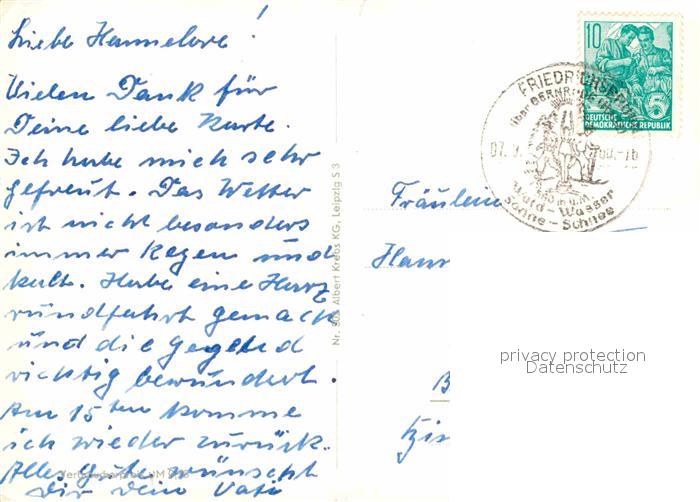 Liebe Hannelore!
Vielen Dank für
Deine liebe Karte.
Ich habe mich sehr
gefreut. Das Wetter
ist nicht besonders
immer Regen und
kalt. Habe eine Harz
rundfahrt gemach
und die Gegend
richtig bewundert.
Am 15ten komme
ich wieder zurück.
Alles Gute wünscht
Dir Dein Vati
Albert Krebs KG, Leipzig S 3
10
DEUTSCHE
DEMOKRATISCHE REPUBLIK
5
FRIEDRICHSBRUNN
über BERNBURG
07.
Wald - Wasser
Sonne - Schnee
Fräulein
Hann
B
privacy protection
Datenschutz